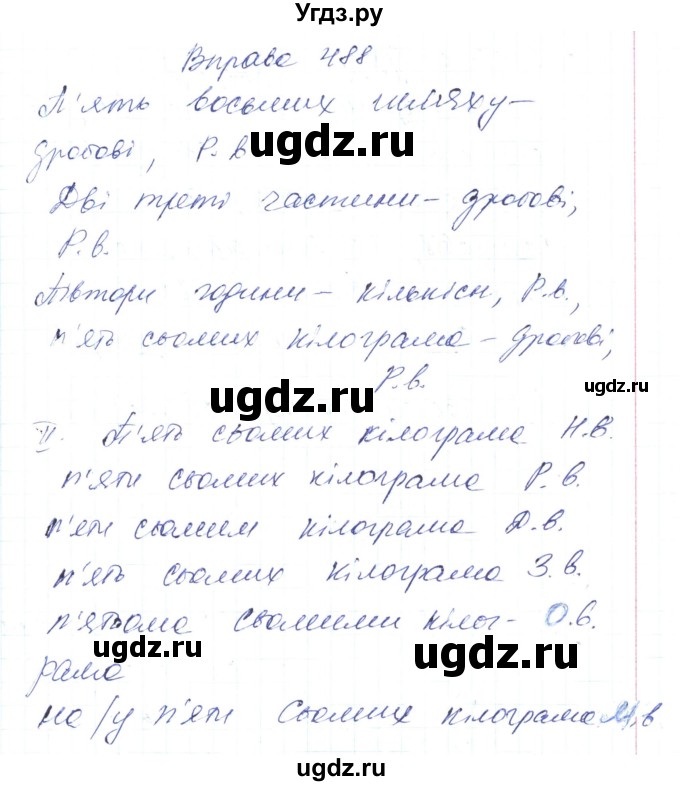 Угдз.ру
Вправа 488
П'ять восьмих шляху –
дробові, Р. в
ugdz.ru
Дві треті частини – дробові,
Р. в.
ugdz.ru
Півтори години – кількісн, Р.в.,
п'ять сьомих кілограма – дробові,
ugdz.ru
Р.в.
ugdz.ru
II. П'ять сьомих кілограма Н.В.
п'яти сьомих кілограма Р. в.
ugdz.ru
п'яти сьомим кілограма Д.в.
п'ять сьомих кілограма З.в.
ugdz.ru
п'ятьома сьомими кілог- О.в.
рама
ugdz.ru
на/у п'яти сьомих кілограма М.в
ugdz.ru
ugdz.ru